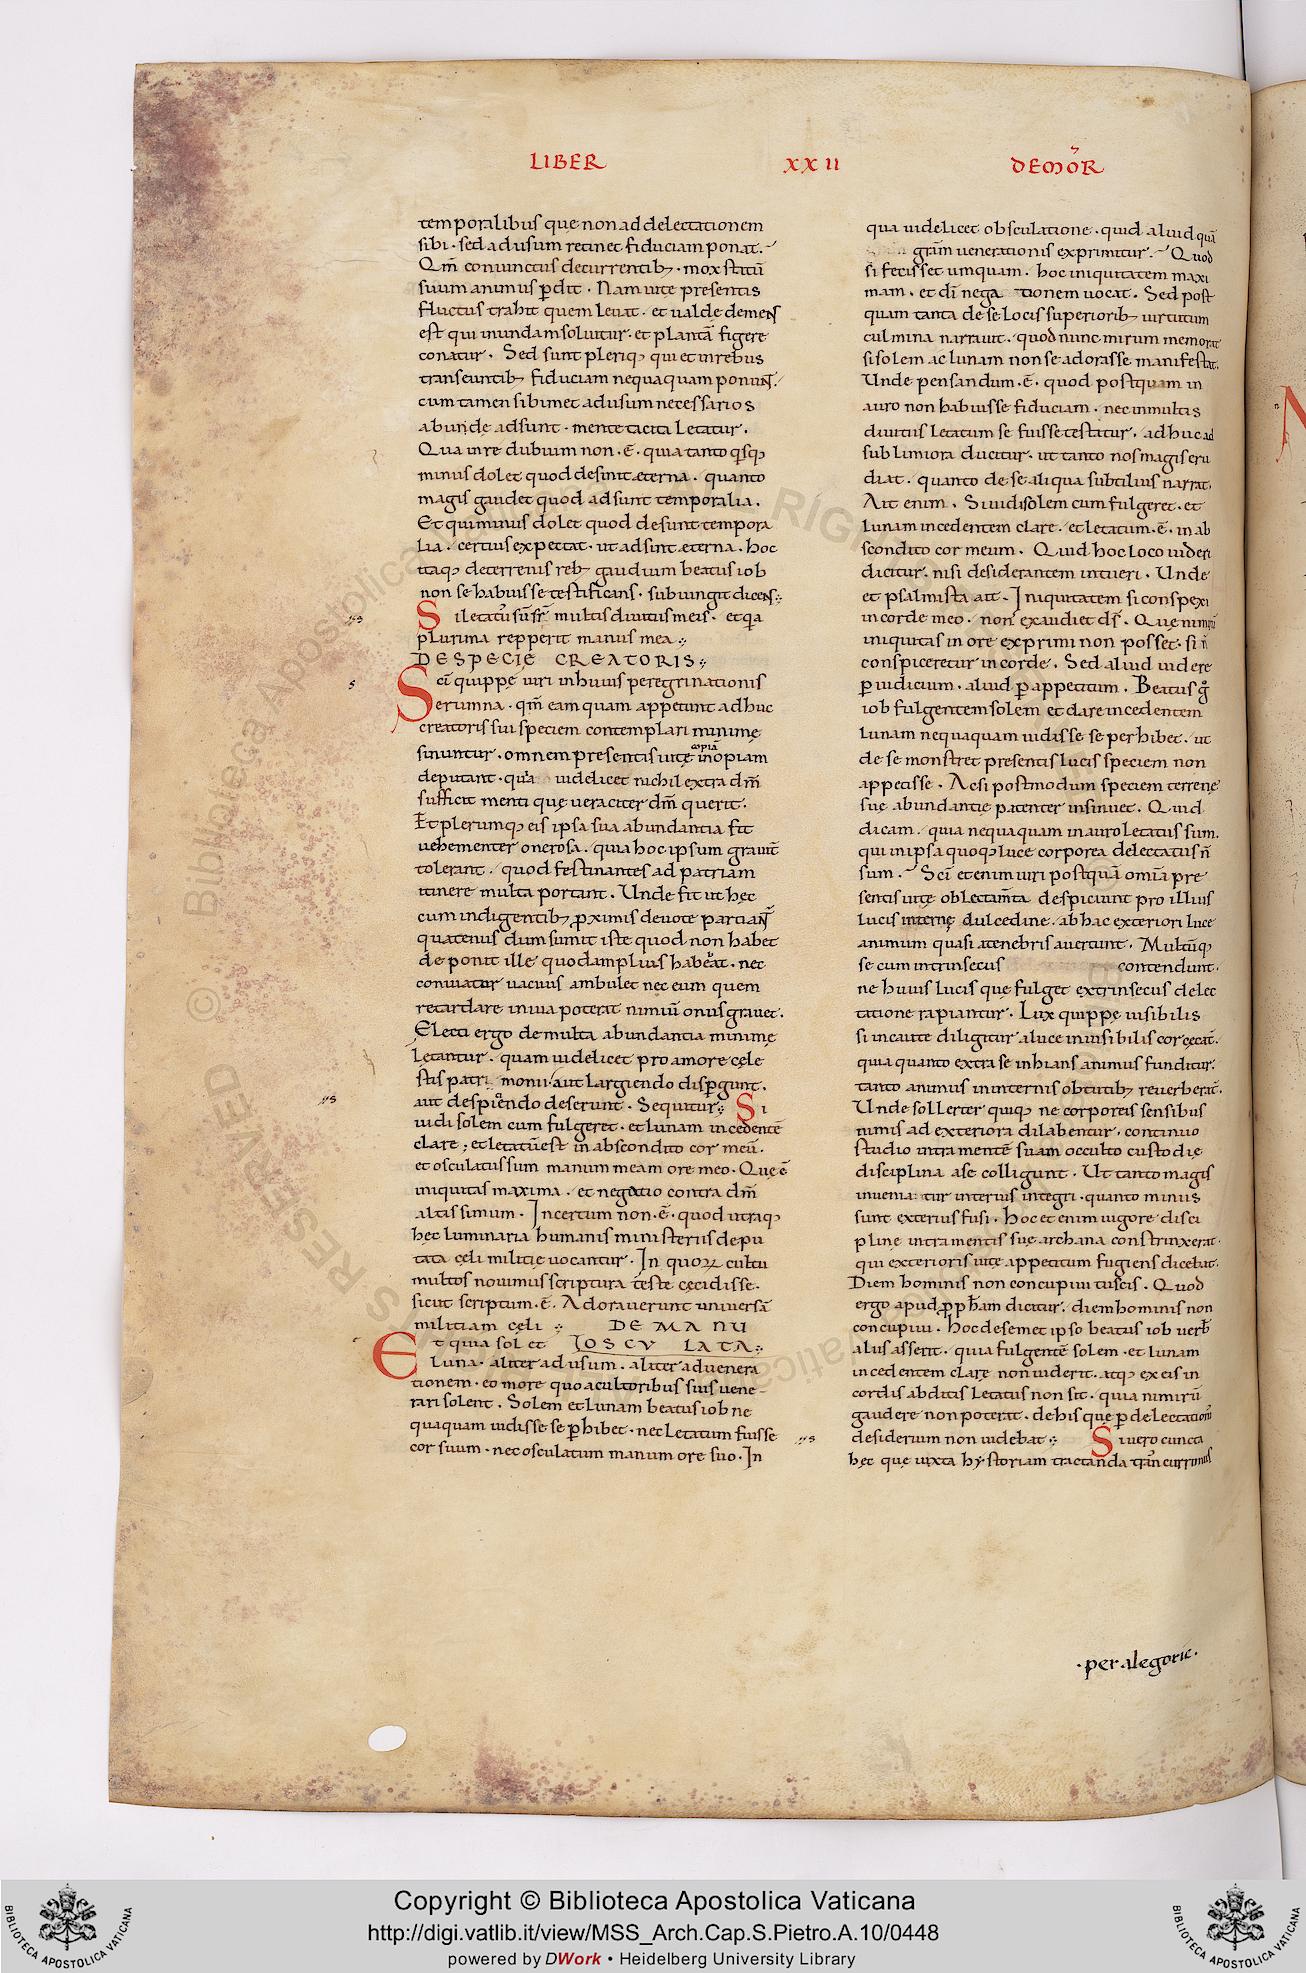 LIBER XXII DE MOR̄
temporalibus quę non ad delectationem
sibi · sed ad usum retinet fiduciam ponat.
Qm̄ coniunctus decurrentib; · mox statū
suum animus ꝑdit . Nam uitę presentis
fluctus trahit quem leuat · et ualde demens
est qui in undam soluitur · et plantā figere
conatur . Sed sunt pleriq; qui et in rebus
transeuntib; fiduciam nequaquam ponunt.
cum tamen sibimet ad usum necessarios
abunde adsunt · mente tacita lętatur .
Qua in re dubium non · ē · quia tanto q̇sq;
minus dolet quod desint ęterna . quanto
magis gaudet quod adsunt temporalia .
Et qui minus dolet quod desunt tempora
lia . certius expectat · ut adsint ęterna . hoc
itaq; de terrenis reb; gaudium beatus iob
non se habuisse testificans . subiungit dicens
Si lętatus sū sr̄ multis diuitiis meis . et qa
plurima repperit manus mea
DE SPECIE CREATORIS
Scī quippę uiri in huius peregrinationis
erumna · qm̄ eam quam appetunt adhuc
creatoris sui speciem contemplari minimę
sinuntur . omnem presentis uitę inopiam
copiā
deputant · quia uidelicet nichil extra dm̄
sufficit menti quę ueraciter dm̄ querit .
Et plerumq; eis ipsa sua abundantia fit
uehementer onerosa . quia hoc ipsum grauit̄
tolerant . quod festinantes ad patriam
itinere multa portant . Unde fit ut hęc
cum indigentib; ꝓximis deuote partiant̄
quatenus dum sumit iste quod non habet
deponit ille quod amplius habebat . nec
conuiator uacuus ambulet nec eum quem
retardare in uia poterat nimiū onus grauet .
Electi ergo de multa abundantia minimę
lętantur . quam uidelicet pro amore cęle
stis patrimonii aut largiendo disꝑgunt .
aut despiciendo deserunt . Sequitur Si
uidi solem cum fulgeret · et lunam incedentē
clare ; et lętatū est in abscondito cor meū .
et osculatus sum manum meam ore meo · Quę ē
iniquitas maxima . et negatio contra dm̄
altissimum . Incertum non · ē · quod utraq;
hęc luminaria humanis ministeriis depu
tata cęli militię uocantur . In quoꝝ cultu
multos nouimus scriptura teste cęcidisse .
sicut scriptum · ē . Adorauerunt uniuersā
militiam cęli DE MANU
Et quia sol et IOSCU LATA
Luna · aliter ad usum . aliter ad uenera
tionem . eo more quo a cultoribus suis uene
rari solent . Solem et lunam beatus iob ne
quaquam uidisse se ꝑhibet · nec lętatum fuisse
cor suum · nec osculatum manum ore suo . In
qua uidelicet obsculatione . quid aliud quā
grām uenerationis exprimitur . Quod
si fecisset umquam . hoc iniquitatem maxi
mam . et dī negationem uocat . Sed post
quam tanta de se locis superiorib; uirtutum
culmina narrauit . quod nunc mirum memorat
si solem ac lunam non se adorasse manifestat .
Unde pensandum · ē · quod postquam in
auro non habuisse fiduciam . nec in multis
diuitiis lętatum se fuisse testatur . adhuc ad
subtimiora ducitur . ut tanto nos magis eru
diat . quanto de se aliqua subtilius narrat .
Ait enim . Si uidi solem cum fulgeret . et
lunam incedentem clare . et lętatum · ē . in ab
scondito cor meum . Quid hoc loco uideri
dicitur . nisi desiderantem intueri . Unde
et psalmista ait . Iniquitatem si conspexi
in corde meo . non exaudiet ds̄ . Quę nimirū
iniquitas in ore exprimi non posset . si n̄
conspiceretur in corde . Sed aliud uidere
ꝑ iudicium . aliud ꝑ appetitum . Beatus g̊
iob fulgentem solem et clare incedentem
lunam nequaquam uidisse se perhibet . ut
de se monstret presentis lucis speciem non
appetisse . Ac si postmodum speciem terrenę
suę abundantię patenter insinuet . Quid
dicam . quia nequaquam in auro lętatus sum .
qui in ipsa quoq; luce corporea delectatus n̄
sum . Scī etenim uiri postquā omīa pre
sentis uitę oblectam̄ta despiciunt pro illius
lucis internę dulcedine . ab hac exteriori luce
animum quasi a tenebris auertunt . Multūq;
se cum intrinsecus contendunt .
ne huius lucis quę fulget extrinsecus delec
tatione rapiantur . Lux quippę uisibilis
si incaute diligitur a luce inuisibilis cor cęcat .
quia quanto extra se inhians animus funditur .
tanto animus in internis obtutib; reuerberat̄ .
Unde sollerter quiq; ne corporeis sensibus
nimis ad exteriora dilabentur . continuo
studio intra mentē suam occulto custodię
disciplina a se colligunt . Ut tanto magis
inueniantur interius integri . quanto minus
sunt exterius fusi . Hoc etenim uigore disci
plinę intra mentis suę archana constrinxerat .
qui exterioris uitę appetitum fugiens dicebat .
Diem hominis non concupiui tu scis . Quod
ergo apud ꝓph̄am dicitur . diem hominis non
concupiui . hoc de semet ipso beatus iob uerb̄
aliis asserit . quia fulgentē solem . et lunam
incedentem clare non uiderit . atq; ex eis in
cordis abditis lętatus non sit . quia nimirū
gaudere non poterat . de his quę ꝑ delectationē
desiderium non uidebat Si uero cuncta
hęc quę iuxta hystoriam tractanda trān currimus
· per alegorię ·
Copyright © Biblioteca Apostolica Vaticana
http://digi.vatlib.it/view/MSS_Arch.Cap.S.Pietro.A.10/0448
powered by DWork • Heidelberg University Library
BIBLIOTECA APOSTOLICA VATICANA
BIBLIOTECA APOSTOLICA VATICANA